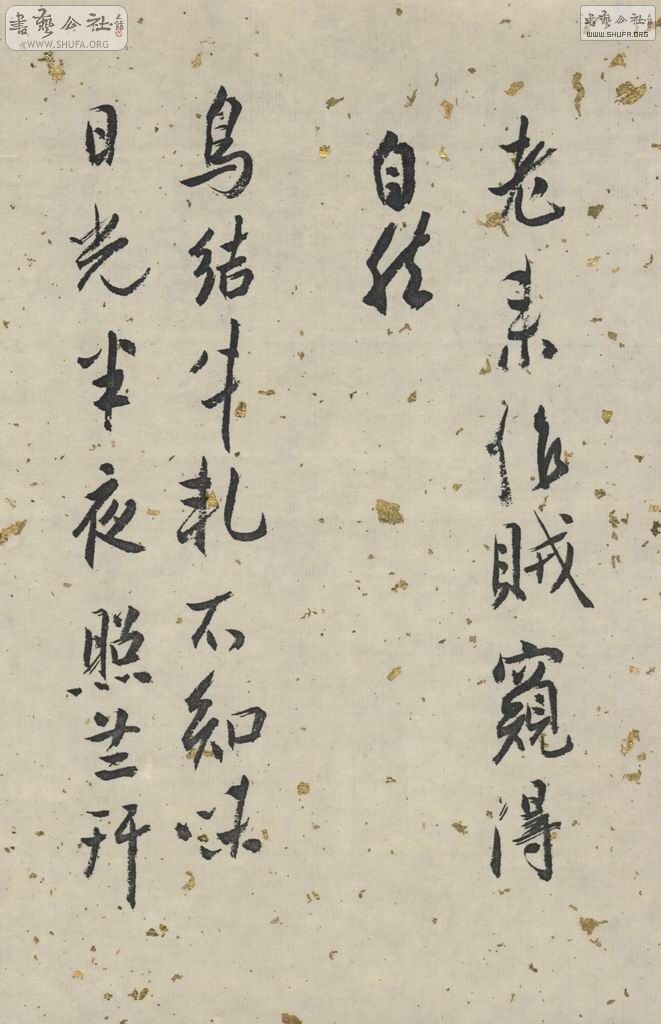 老来作賊窺得
自然
鳥結牛軋不知味
日光半夜照
書藝公社
WWW.SHUFA.ORG
書藝公社
WWW.SHUFA.ORG